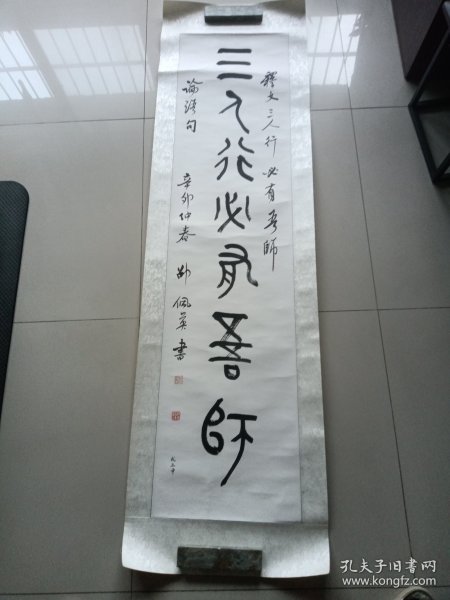 三人行必有吾師
釋文三人行必有吾師
論語句
辛卯仲春
佩英書
孔夫子旧书网
www.kongfz.com